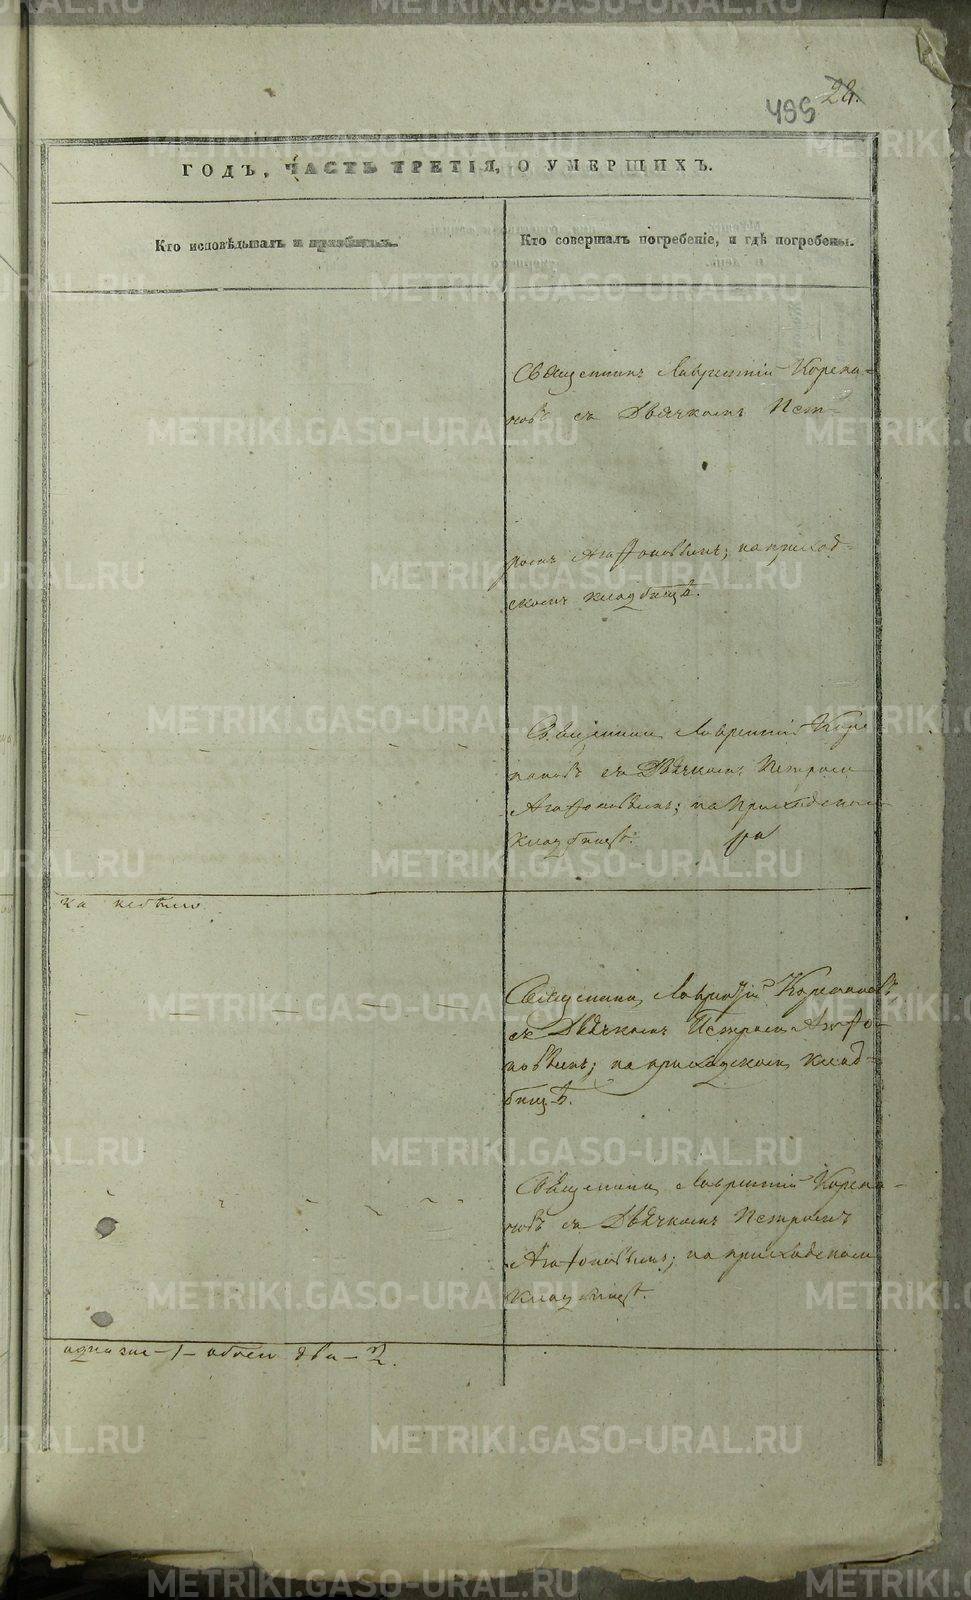 28.
495
ГОДЪ, ЧАСТЬ ТРЕТІЯ, О УМЕРШИХЪ.
Кто исповѣдывалъ и пріобщалъ.
Кто совершалъ погребеніе, и гдѣ погребены.
Священникъ Лаврентій Корепа-
новъ съ Дьячкомъ Пет-
ромъ Агафоновымъ; на приход-
скомъ кладбищѣ.
Священникъ Лаврентій Коре
пановъ съ Дьячкомъ Петромъ
Агафоновымъ; на Приходскомъ
кладбищѣ.
Священникъ Лаврентій Корепановъ
съ Дьячкомъ Петромъ Агафо-
новымъ; на приходскомъ клад-
бищѣ.
Священникъ Лаврентій Корепа-
новъ съ Дьячкомъ Петромъ
Агафоновымъ; на приходскомъ
кладбищѣ.
- 1 - обоего два - 2.
METRIKI.GASO-URAL.RU